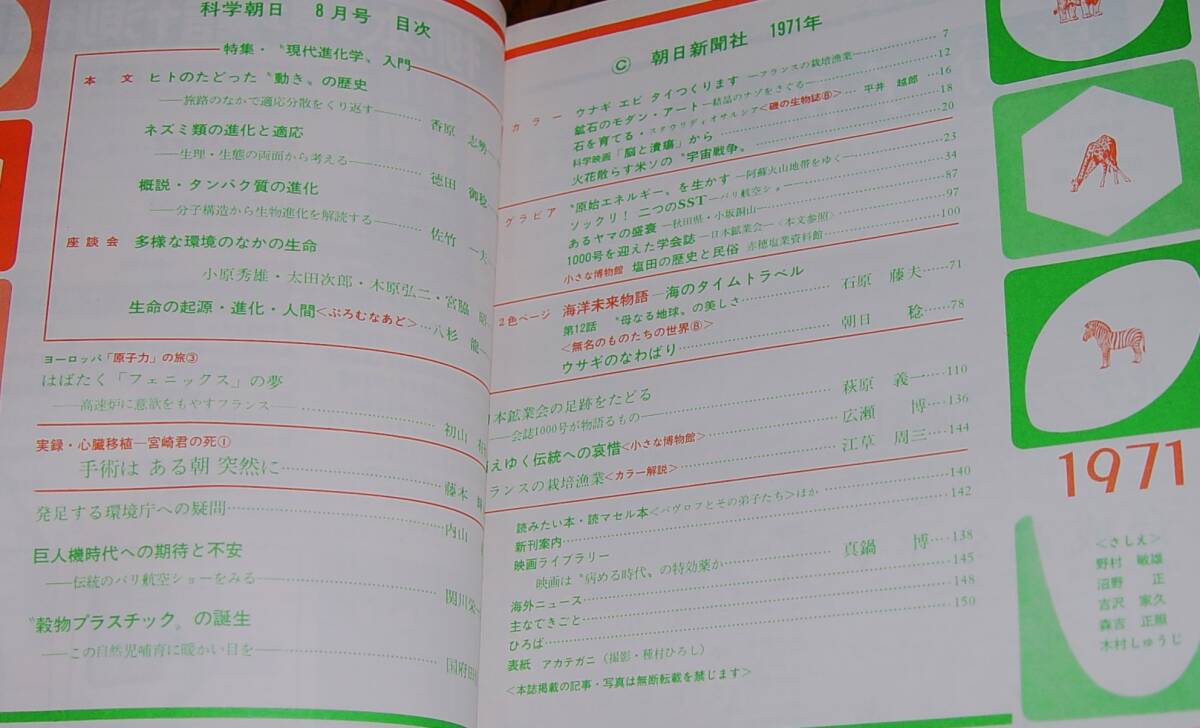 科学朝日 8月号 目次
特集・〝現代進化学〟入門
本文 ヒトのたどった〝動き〟の歴史
——旅路のなかで適応分散をくり返す 香原 志勢
ネズミ類の進化と適応
——生理・生態の両面から考える 徳田 御稔
概説・タンパク質の進化
——分子構造から生物進化を解読する 佐竹 一夫
座談会 多様な環境のなかの生命
小原秀雄・太田次郎・木原弘二・宮脇 昭
生命の起源・進化・人間<ぷろむなあど> 八杉 龍一
ヨーロッパ「原子力」の旅③
はばたく「フェニックス」の夢
——高速炉に意欲をもやすフランス—— 初山
実録・心臓移植—宮崎君の死①
手術は ある朝 突然に 藤本
発足する環境庁への疑問 内山
巨人機時代への期待と不安
——伝統のパリ航空ショーをみる 関川栄一
〝穀物プラスチック〟の誕生
——この自然児哺育に暖かい目を 国府田
© 朝日新聞社 1971年
カラー ウナギ エビ タイつくります —フランスの栽培漁業— 7
鉱石のモダン・アート —結晶のナゾをさぐる— 12
石を育てる・スタウリディオサルシア<磯の生物誌⑧> 平井 越郎 16
科学映画「脳と潰瘍」から 18
火花散らす米ソの〝宇宙戦争〟 20
グラビア 〝原始エネルギー〟を生かす —阿蘇火山地帯をゆく— 23
ソックリ! 二つのSST —パリ航空ショー 34
あるヤマの盛衰 —秋田県・小坂銅山— 87
1000号を迎えた学会誌 —日本鉱業会—<本文参照> 97
小さな博物館 塩田の歴史と民俗 赤穂塩業資料館 100
2色ページ 海洋未来物語—海のタイムトラベル
第12話 〝母なる地球〟の美しさ 石原 藤夫 71
<無名のものたちの世界⑧>
ウサギのなわばり 朝日 稔 78
本鉱業会の足跡をたどる
——会誌1000号が物語るもの 萩原 義一 110
えゆく伝統への哀惜<小さな博物館> 広瀬 博 136
ランスの栽培漁業<カラー解説> 江草 周三 144
読みたい本・読マセル本<パヴロフとその弟子たち>ほか 140
新刊案内 142
映画ライブラリー
映画は〝病める時代〟の特効薬か 真鍋 博 138
海外ニュース 145
主なできごと 148
ひろば 150
表紙 アカテガニ(撮影・種村ひろし)
<本誌掲載の記事・写真は無断転載を禁じます>
1971
<さしえ>
野村 敏雄
沼野 正
吉沢 家久
森吉 正照
木村しゅうじ